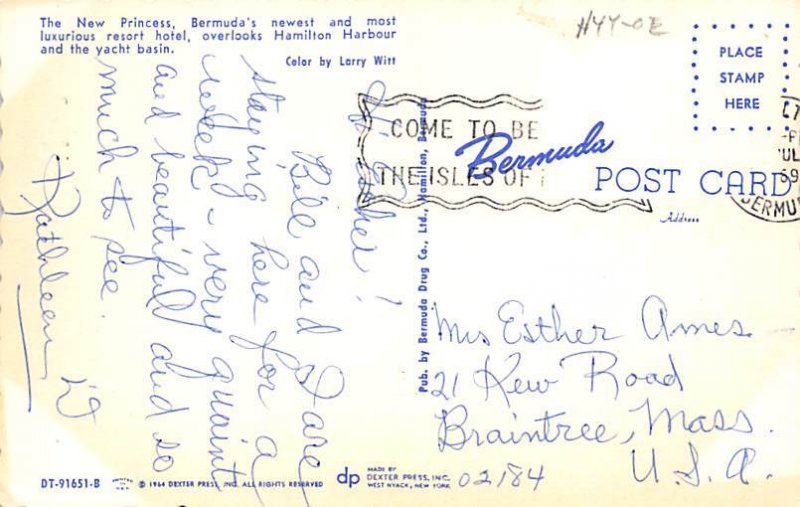 The New Princess, Bermuda's newest and most
luxurious resort hotel, overlooks Hamilton Harbour
and the yacht basin.
Color by Larry Witt
Hi Esther!
Bill and I are
staying here for a
week - very quaint
and beautiful and so
much to see.
Kathleen
Pub. by Bermuda Drug Co., Ltd., Hamilton, Bermuda
COME TO BE
THE ISLES OF
Bermuda
POST CARD
Address
PLACE
STAMP
HERE
BERMU
Mrs Esther Ames
21 Kew Road
Braintree, Mass.
U.S.A.
02184
DT-91651-B
© 1964 DEXTER PRESS, INC. ALL RIGHTS RESERVED
dp
MADE BY
DEXTER PRESS, INC.
WEST NYACK, NEW YORK